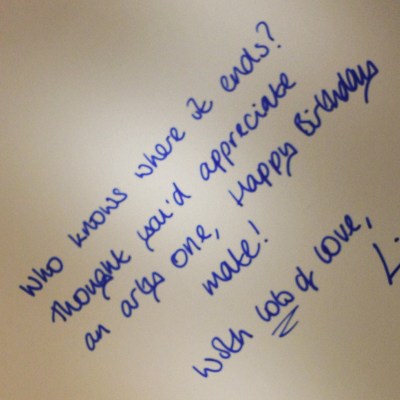 Who knows where it ends?
Thought you'd appreciate
an artys one, Happy Birthday
mate!
With lots of love,
L